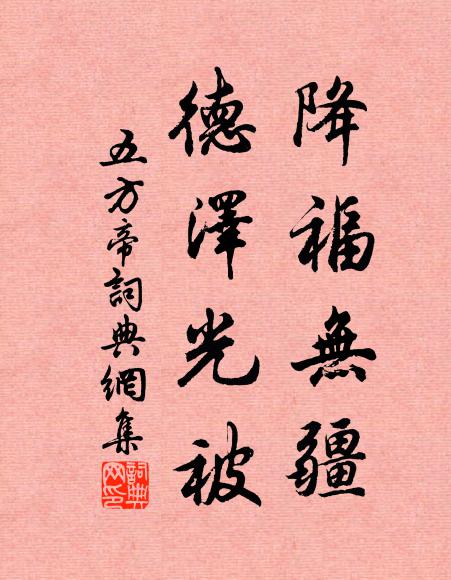 降福無疆
德澤光被
五方帝詞典網集
詞典網印